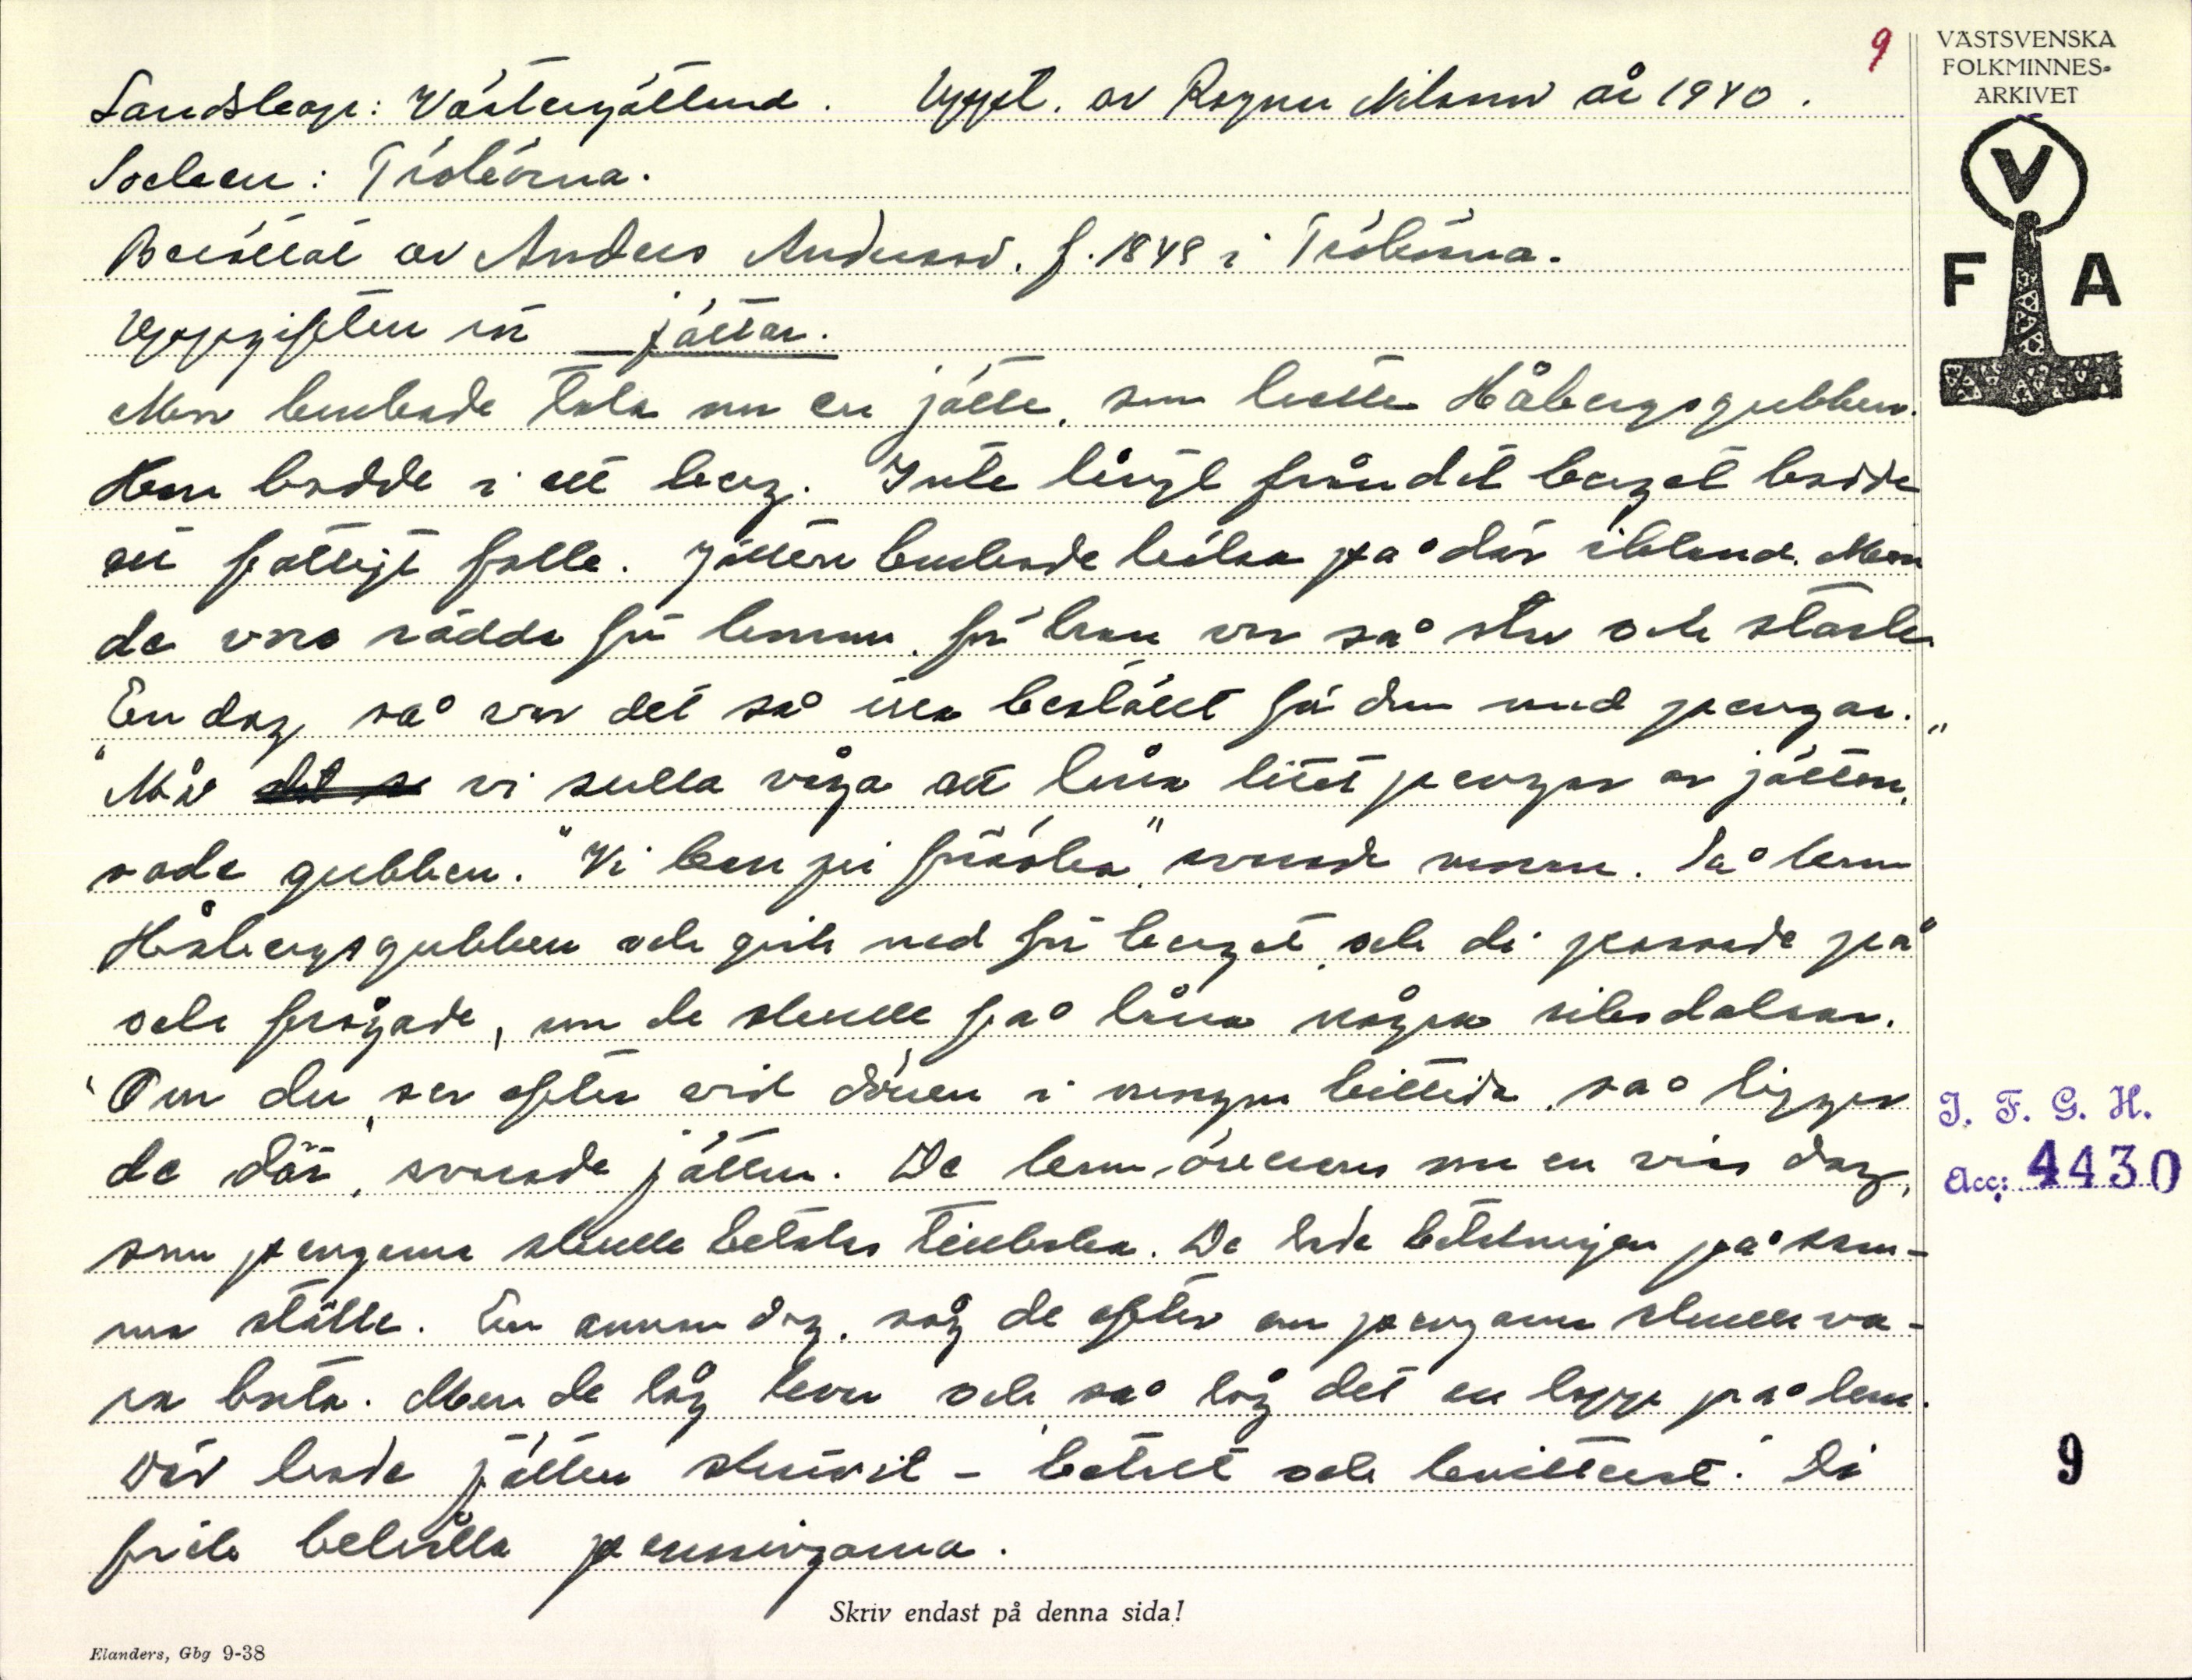 9
VÄSTSVENSKA
FOLKMINNES-
ARKIVET
V
F A
Landskap: Västergötland. Uppt. av Ragnar Nilsson år 1940.
Socken: Tråvörna.
Berättat av Anders Andersson. f. 1848 i Tråvörna.
Uppgiften rör jättar.
Man brukade tala om en jätte, som hette Håbergsgubben.
Han bodde i ett berg. Inte långt från det berget bodde
ett fattigt folk. Jätten brukade hälsa på där ibland. Men
de voro rädda för honom, för han var så stor och stark.
En dag så var det så illa beställt för dem med pengar.
"Mån det s vi skulle våga att låna litet pengar av jätten,"
sade gubben. "Vi kan ju försöka", svarade mannen. Så kom
Håbergsgubben och gick ned för berget, och di passade på
och frågade, om de skulle få låna några riksdalrar.
"Om du ser efter vid dörren i morgon bittida, så ligger
de där", svarade jätten. De kom överens om en viss dag,
som pengarna skulle betalas tillbaka. De lade betalningen på sam-
ma ställe. En annan dag, såg de efter om pengarna skulle va-
ra borta. Men de låg kvar och så låg det en lapp på dem.
Där hade jätten skrivit - betalt och kvitterat. Di
fick behålla penningarna.
I. F. G. H.
Acc: 4430
9
Skriv endast på denna sida!
Elanders, Gbg 9-38